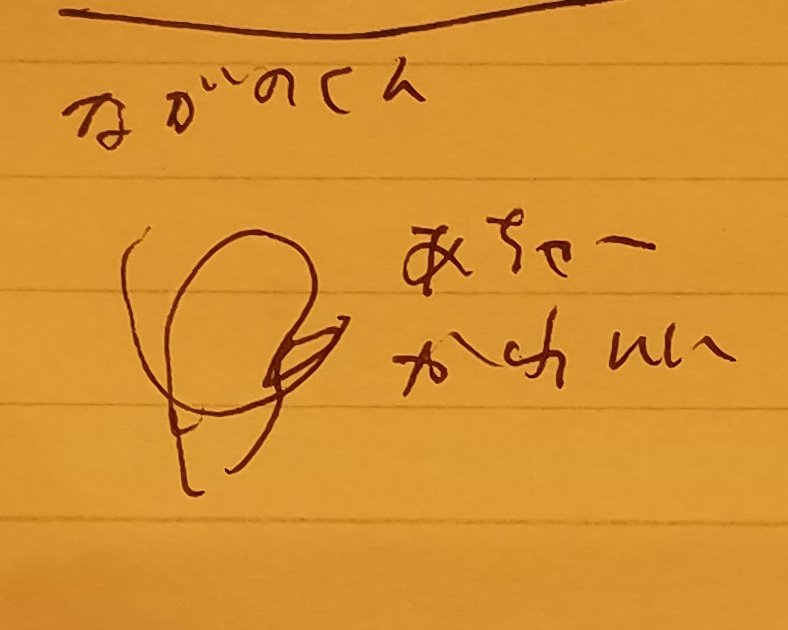 ながのくん
めちゃー
かわいい